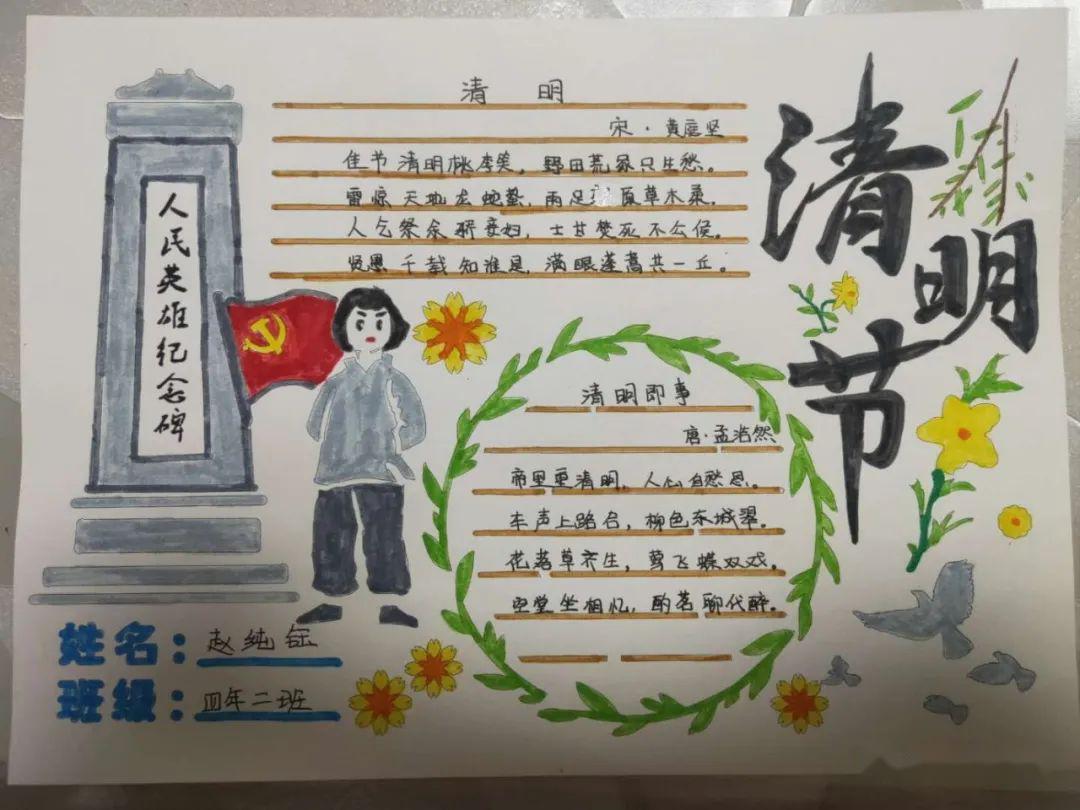 清明
宋·黄庭坚
佳节清明桃李笑，野田荒冢只生愁。
雷惊天地龙蛇蛰，雨足原草木柔。
人乞祭余骄妾妇，士甘焚死不公候。
贤愚千载知谁是，满眼蓬蒿共一丘。
清明节
人民英雄纪念碑
清明即事
唐·孟浩然
帝里重清明，人心自愁思。
车声上路合，柳色东城翠。
花落草齐生，莺飞蝶双戏。
空堂坐相忆，酌茗聊代醉。
姓名：赵纯
班级：四年二班